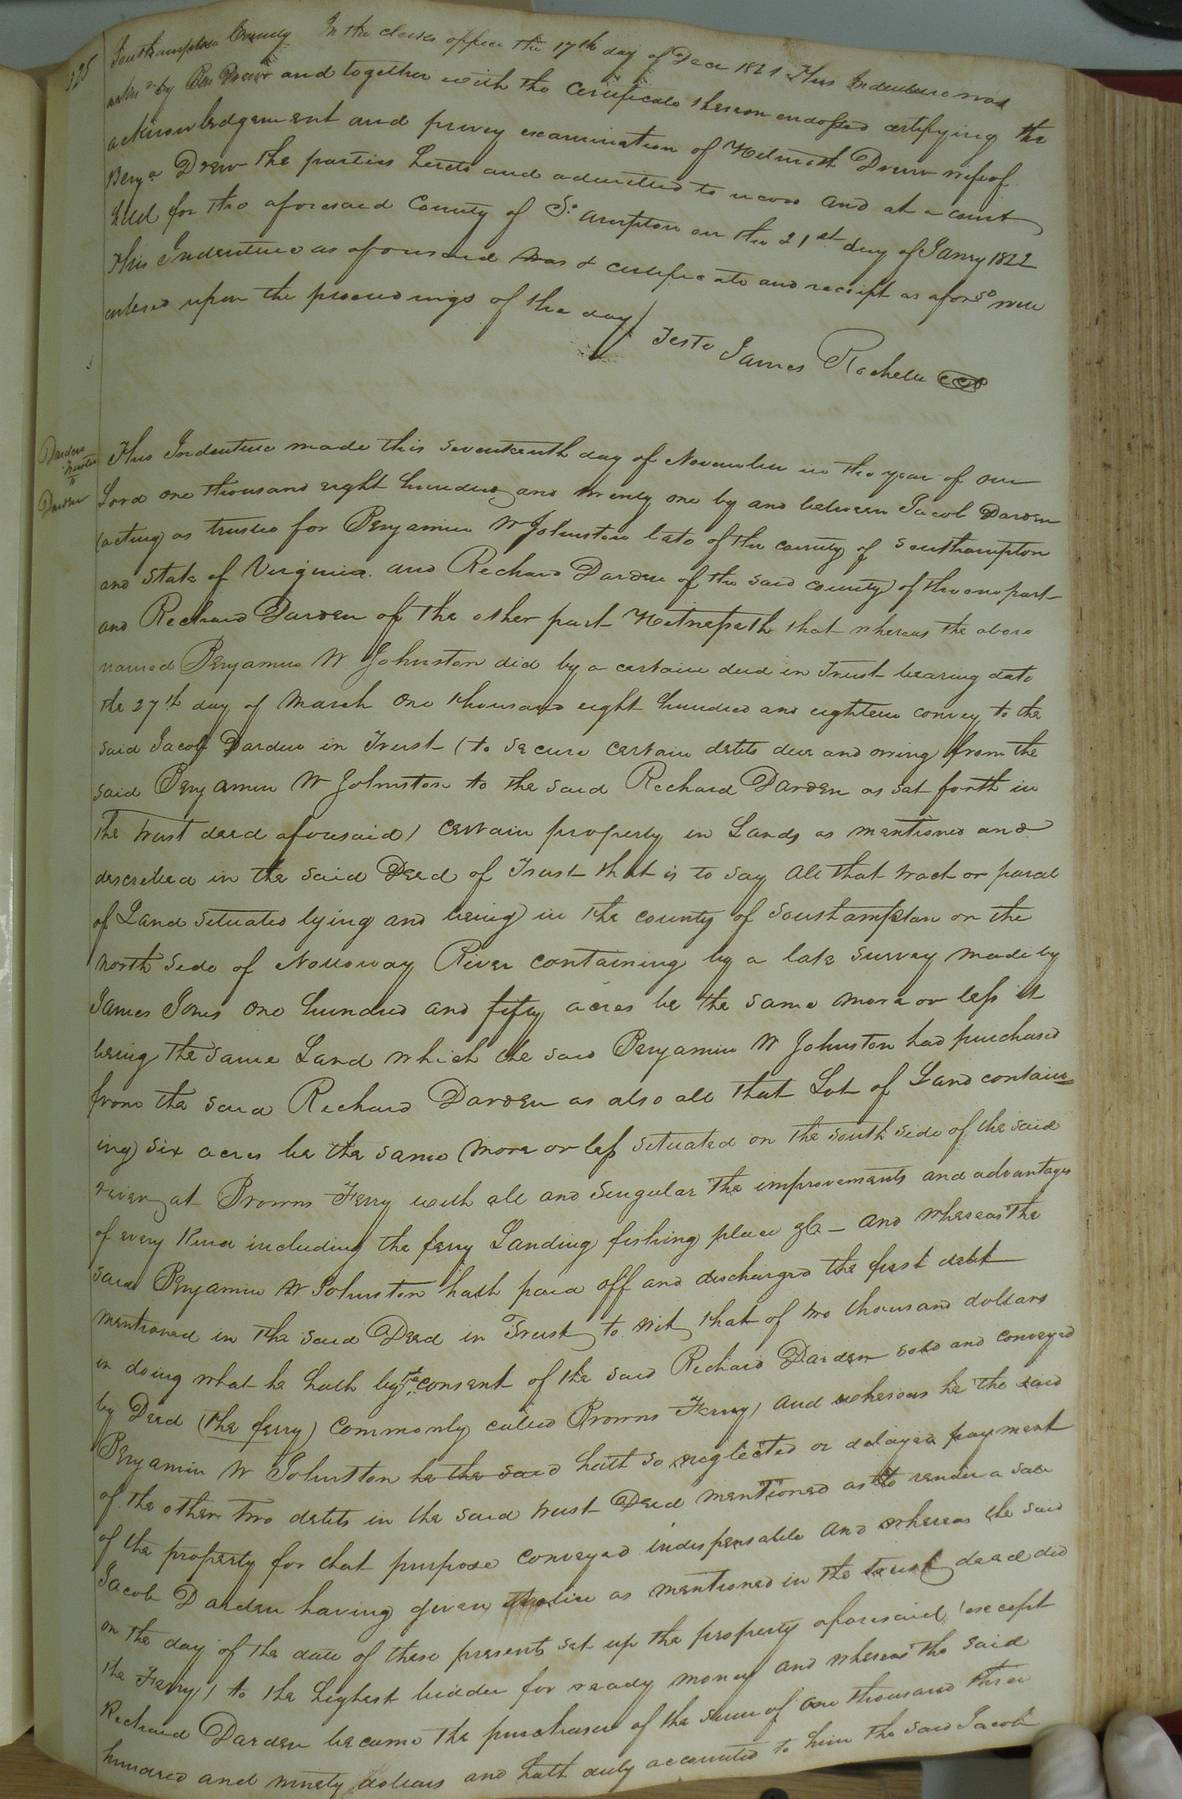 125
Southampton County In the clerks office the 17th day of Decr 1821 This Indenture was
ackn.d by Ben Drew and together with the certificate thereon endorsed certifying the
acknowledgement and privy examination of Drew wife of
Benja Drew the parties hereto and admitted to record and at a court
held for the aforesaid County of So. ampton on the 21st day of Janry 1822
This Indenture as aforesaid was & certificate and receipt as aforsd were
entered upon the proceedings of the day
Teste James Rochelle CCS
Darden
Trustee
to
Darden
This Indenture made this seventeenth day of November in the year of our
Lord one thousand eight hundred and twenty one by and between Jacob Darden
(acting) as trustee for Benjamin W Johnston late of the county of Southampton
and State of Virginia. and Richard Darden of the said county) of the one part
and Richard Darden of the other part Witnesseth that whereas the above
named Benjamin W Johnston did by a certain deed in Trust bearing date
the 27th day of March One thousand eight hundred and eighteen convey to the
said Jacob Darden in Trust (to secure certain debts due and owing from the
said Benjamin W Johnston to the said Richard Darden as sat forth in
the trust deed aforesaid) certain property in Lands as mentioned and
described in the said Deed of Trust that is to say all that tract or parcel
of Land situated lying and being) in the county of Southampton on the
north side of Nottoway River containing by a late survey made by
James Jones One hundred and fifty acres be the same more or less it
being the same Land which the said Benjamin W Johnston had purchased
from the said Richard Darden as also all that Lot of Land contain=
ing) six acres be the same more or less situated on the south side of the said
river at Browns Ferry with all and singular the improvements and advantages
of every kind including the ferry Landing fishing place &c - and whereas the
said Benjamin W Johnston hath paid off and discharged the first debt
mentioned in the said Deed in Trust to wit that of two thousand dollars
in doing what he hath by the consent of the said Richard Darden sold and conveyed
by Deed (the ferry) commonly called Browns Ferry) and whereas he the said
Benjamin W Johnston he the said hath so neglected or delayed payment
of the other two debts in the said trust Deed mentioned as to render a sale
of the property for that purpose conveyed indispensable and whereas the said
Jacob Darden having given notice as mentioned in the trust deed did
on the day of the date of these presents set up the property aforesaid (except
the Ferry) to the highest bidder for ready money and whereas the said
Richard Darden became the purchaser of the sum of one thousand three
hundred and ninety dollars and hath duly accounted to him the said Jacob